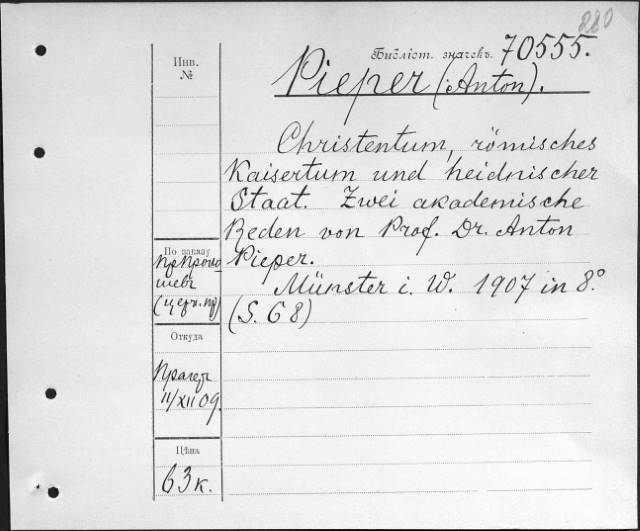 880
Библіот. значекъ. 70555.
Инв.
№
Pieper (Anton).
Christentum, römisches
Kaisertum und heidnischer
Staat. Zwei akademische
Reden von Prof. Dr. Anton
Pieper.
Münster i. W. 1907 in 8°
(S. 68)
По заказу
шевъ
(церк. пр)
Откуда
Прагеръ
11/XII 09.
Цѣна
63 к.